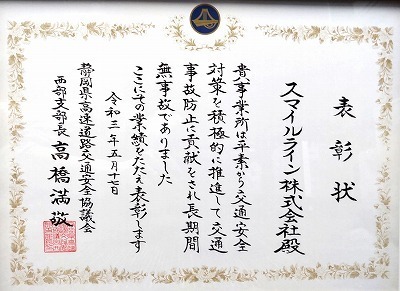 表彰状
スマイルライン株式会社殿
貴事業所は平素から交通安全
対策を積極的に推進して交通
事故防止に貢献をされ長期間
無事故でありました
ここにその業績をたたえ表彰します
令和三年五月十七日
静岡県高速道路交通安全協議会
西部支部長 高橋満敬